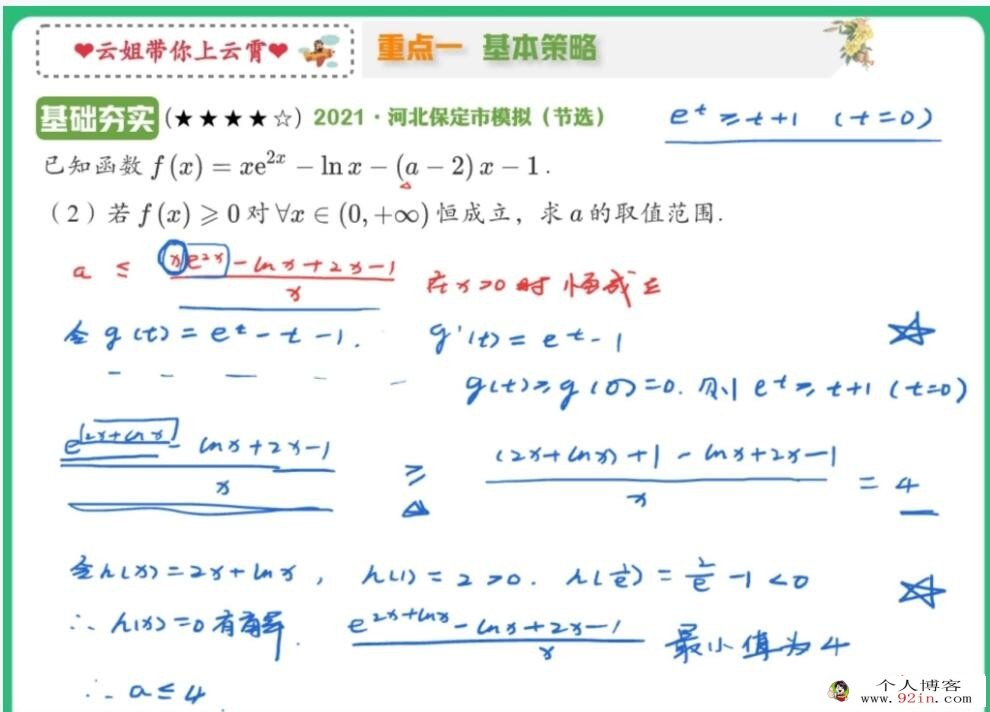 ❤云姐带你上云霄❤
重点一 基本策略
基础夯实 (★★★★☆) 2021·河北保定市模拟(节选)
e^t ≥ t+1 (t=0)
已知函数 f(x)=xe^{2x}-ln x-(a-2)x-1.
(2)若 f(x)⩾0 对 ∀x∈(0,+∞) 恒成立，求 a 的取值范围.
a ≤ (xe^{2x}-lnx+2x-1)/x 在x>0时恒成立
令g(t)=e^t-t-1. g'(t)=e^t-1
g(t)≥g(0)=0. 则 e^t≥t+1 (t=0)
(e^{2x+lnx}-lnx+2x-1)/x ≥ ((2x+lnx)+1-lnx+2x-1)/x = 4
令h(x)=2x+lnx, h(1)=2>0. h(1/e)=2/e-1<0
∴h(x)=0有解. (e^{2x+lnx}-lnx+2x-1)/x 最小值为4
∴a≤4
个人博客
www.92in.com